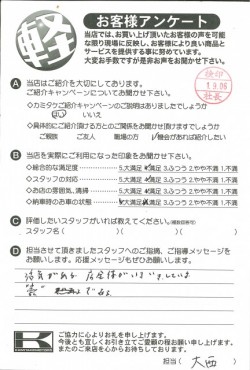 軽
お客様アンケート
当店では、お買い上げ頂いたお客様の声を可能
な限り現場に反映し、お客様により良い商品と
サービスを提供する事に努めています。
大変お手数ですが是非お声をお聞かせ下さい。
検印
1.9.06
店長
A 当店はご紹介を大切にしております。
ご紹介キャンペーンについてお聞かせ下さい
◇カミタケご紹介キャンペーンのご説明はありましたでしょうか
はい いいえ
◇具体的にご紹介頂ける方とのご関係をお聞かせ頂けますでしょうか
ご親戚 ご友人 職場の方 機会があれば紹介したい
B 当店を実際にご利用になった印象をお聞かせ下さい。
◇総合的な満足度 5.大満足 4.満足 3.ふつう 2.やや不満 1.不満
◇スタッフの対応 5.大満足 4.満足 3.ふつう 2.やや不満 1.不満
◇お店の雰囲気、清掃 5.大満足 4.満足 3.ふつう 2.やや不満 1.不満
◇納車時のお車の状態 5.大満足 4.満足 3.ふつう 2.やや不満 1.不満
C 評価したいスタッフがいれば教えてください。(複数回答可)
スタッフ名( )( )( )
D 担当させて頂きましたスタッフへのご指摘、ご指導メッセージを
お願いします。応援メッセージもぜひお願いします。
活気がある
です。
K
ご協力に心よりお礼を申し上げます。
今後とも宜しくお引き立てご愛顧の程お願い申し上げます。
またのご来店を心からお待ちしております。
担当( 大西 )